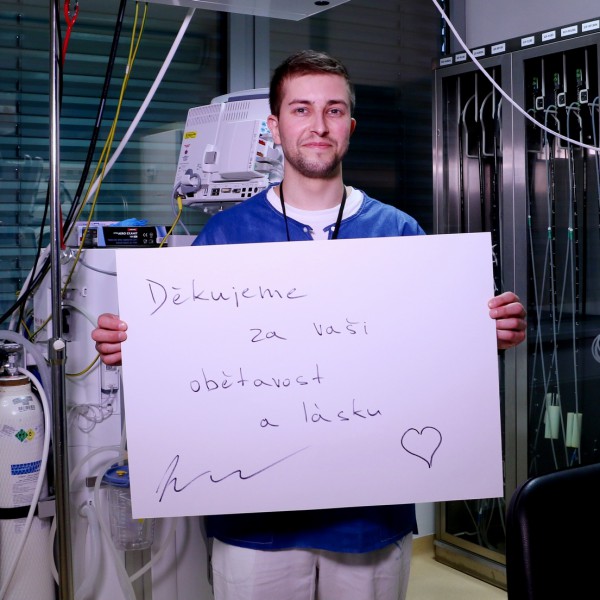 Děkujeme
za vaši
obětavost
a lásku